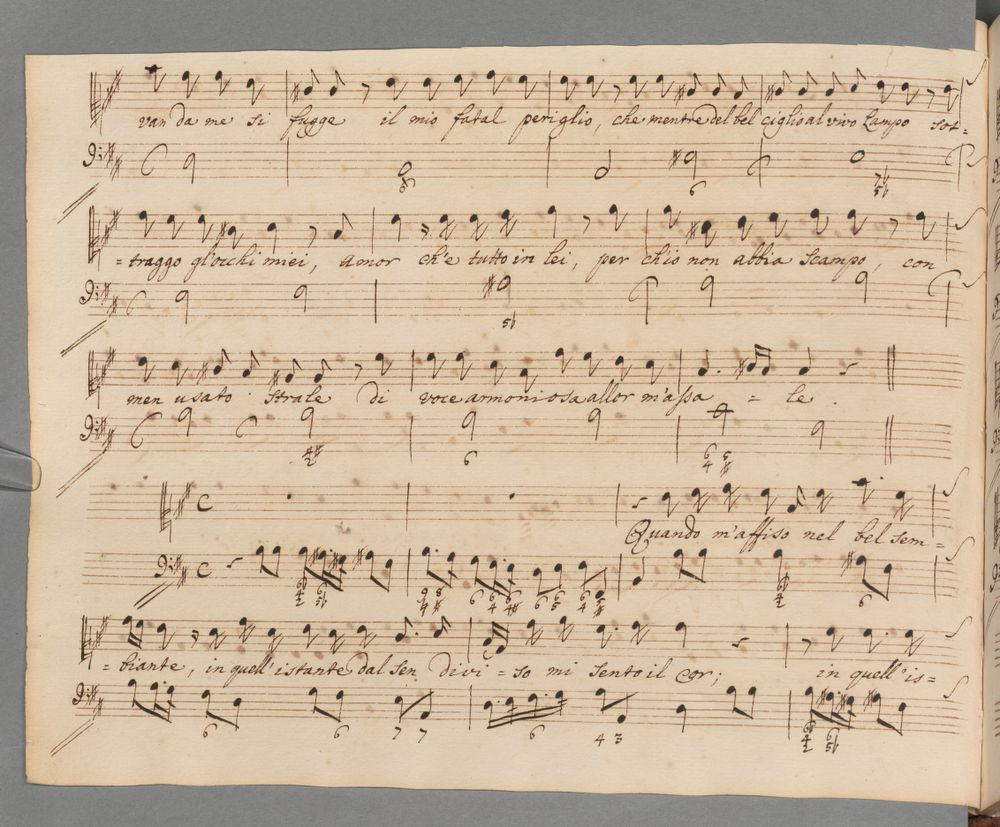 van da me si fugge il mio fatal periglio, che mentre del bel ciglio al vivo Lampo sot=
6 6 7♮ 5♮
=traggo gl'occhi miei, amor ch'è tutto in lei, per ch'io non abbia scampo, con
5♮
men usato strale di voce armoniosa allor m'assa = le.
4# 2 6 6 4 5 #
Quando m'affiso nel bel sem=
6 4 2 6 5♮ 9 4 8 # 6 6 4 6 4# 6 6 5 6 4 5 # 6 4 2 6
=biante, in quell'istante dal sen divi = so mi sento il cor; in quell'is=
6 6 7 7 6 4 3 6 4 2 6 5♮